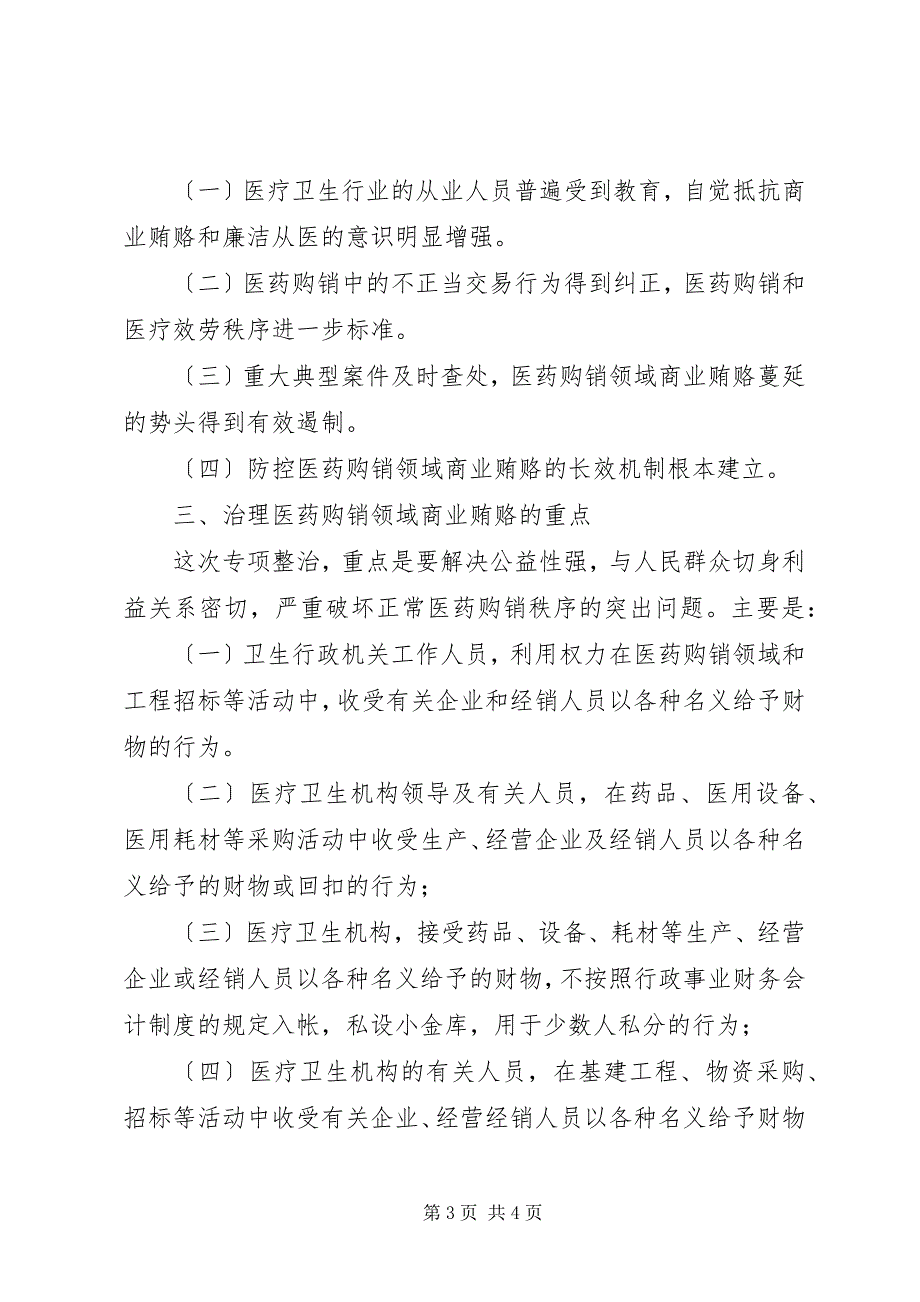 〔一〕医疗卫生行业的从业人员普遍受到教育，自觉抵抗商
业贿赂和廉洁从医的意识明显增强。
〔二〕医药购销中的不正当交易行为得到纠正，医药购销和
医疗效劳秩序进一步标准。
〔三〕重大典型案件及时查处，医药购销领域商业贿赂蔓延
的势头得到有效遏制。
〔四〕防控医药购销领域商业贿赂的长效机制根本建立。
三、治理医药购销领域商业贿赂的重点
这次专项整治，重点是要解决公益性强，与人民群众切身利
益关系密切，严重破坏正常医药购销秩序的突出问题。主要是：
〔一〕卫生行政机关工作人员，利用权力在医药购销领域和
工程招标等活动中，收受有关企业和经销人员以各种名义给予财
物的行为。
〔二〕医疗卫生机构领导及有关人员，在药品、医用设备、
医用耗材等采购活动中收受生产、经营企业及经销人员以各种名
义给予的财物或回扣的行为；
〔三〕医疗卫生机构，接受药品、设备、耗材等生产、经营
企业或经销人员以各种名义给予的财物，不按照行政事业财务会
计制度的规定入帐，私设小金库，用于少数人私分的行为；
〔四〕医疗卫生机构的有关人员，在基建工程、物资采购、
招标等活动中收受有关企业、经营经销人员以各种名义给予财物
第 3 页 共 4 页